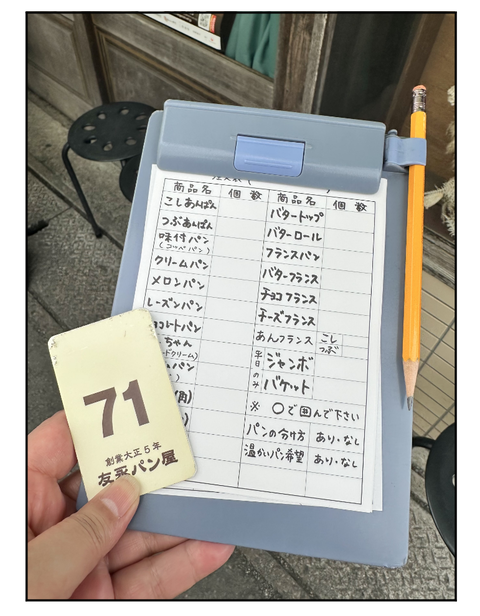 商品名 個数 商品名 個数
こしあんぱん バタートップ
つぶあんぱん バターロール
味付パン フランスパン
(コッペパン)
クリームパン バターフランス
メロンパン チョコフランス
レーズンパン チーズフランス
ョコレートパン あんフランス こし
つぶ
ちゃん 平日のみ ジャンボ
ードクリーム)
ムパン バケット
※ ○で囲んで下さい
パンの分け方 あり・なし
温かいパン希望 あり・なし
71
創業大正5年
友永パン屋